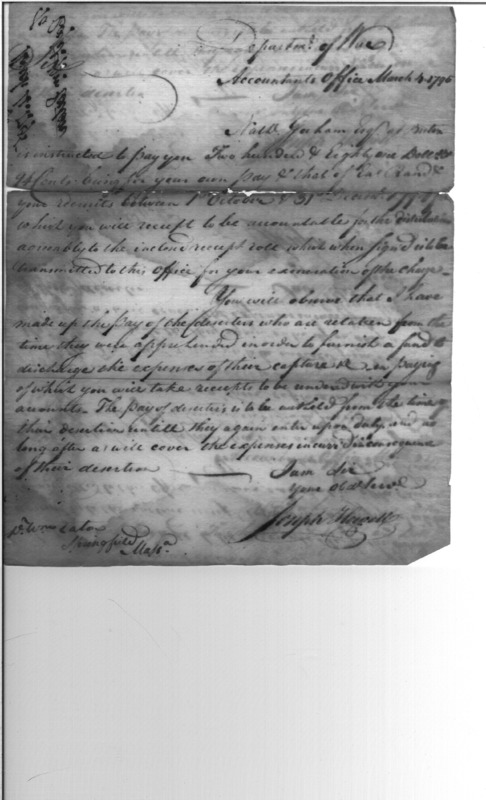 Departmt. of War
Accountants Office March 4 1796
Nathl. Gorham Esqr. of Boston
is instructed to pay you Two hundred & Eighty one Doll
Cents being for your own pay & that of
your recruits between 1st October & 31st
which you will receipt to be accountable for the distribution
agreeably to the inclosed receipt roll which when signed is to be
transmitted to this Office for your exoneration of the charge
You will observe that I have
made up the Pay of the deserters who are retaken from the
time they were apprehended in order to furnish a fund to
discharge the expenses of their capture &c in paying
of which you will take receipts to be rendered with your
accounts. The pay of deserters is to be withheld from the time of
their desertion untill they again enter upon duty and as
long after as will cover the expenses incurred in consequence
of their desertion
I am Sir
your Obd. Serv.
Joseph Howell
Lt. Wm. Eaton
Springfield
Massa.